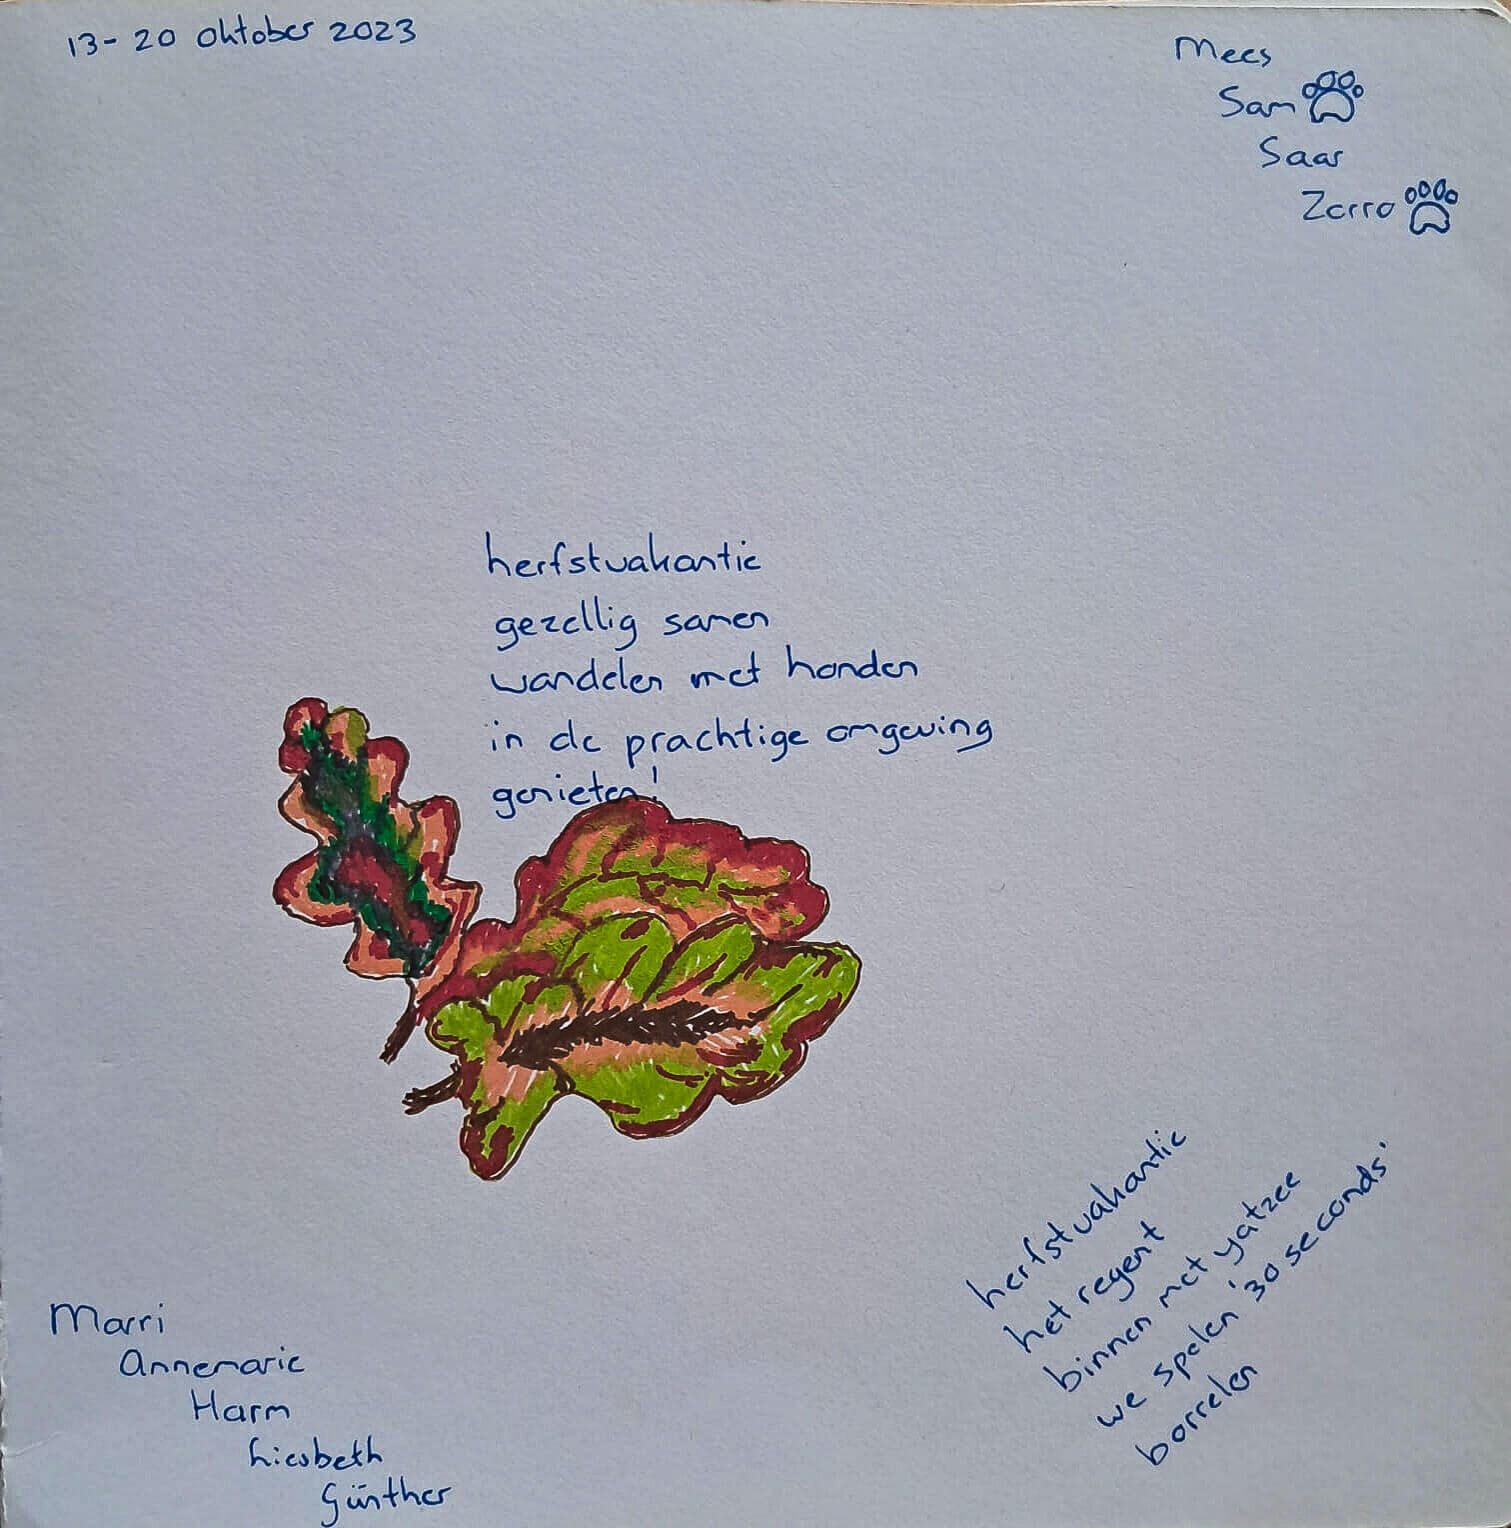 13-20 oktober 2023
Mees
Sam
Saar
Zorro
herfstvakantie
gezellig samen
wandelen met honden
in de prachtige omgeving
genieten!
herfstvakantie
het regent
binnen met yatzee
we spelen '30 seconds'
borrelen
Marri
Annemarie
Harm
Liesbeth
Günther